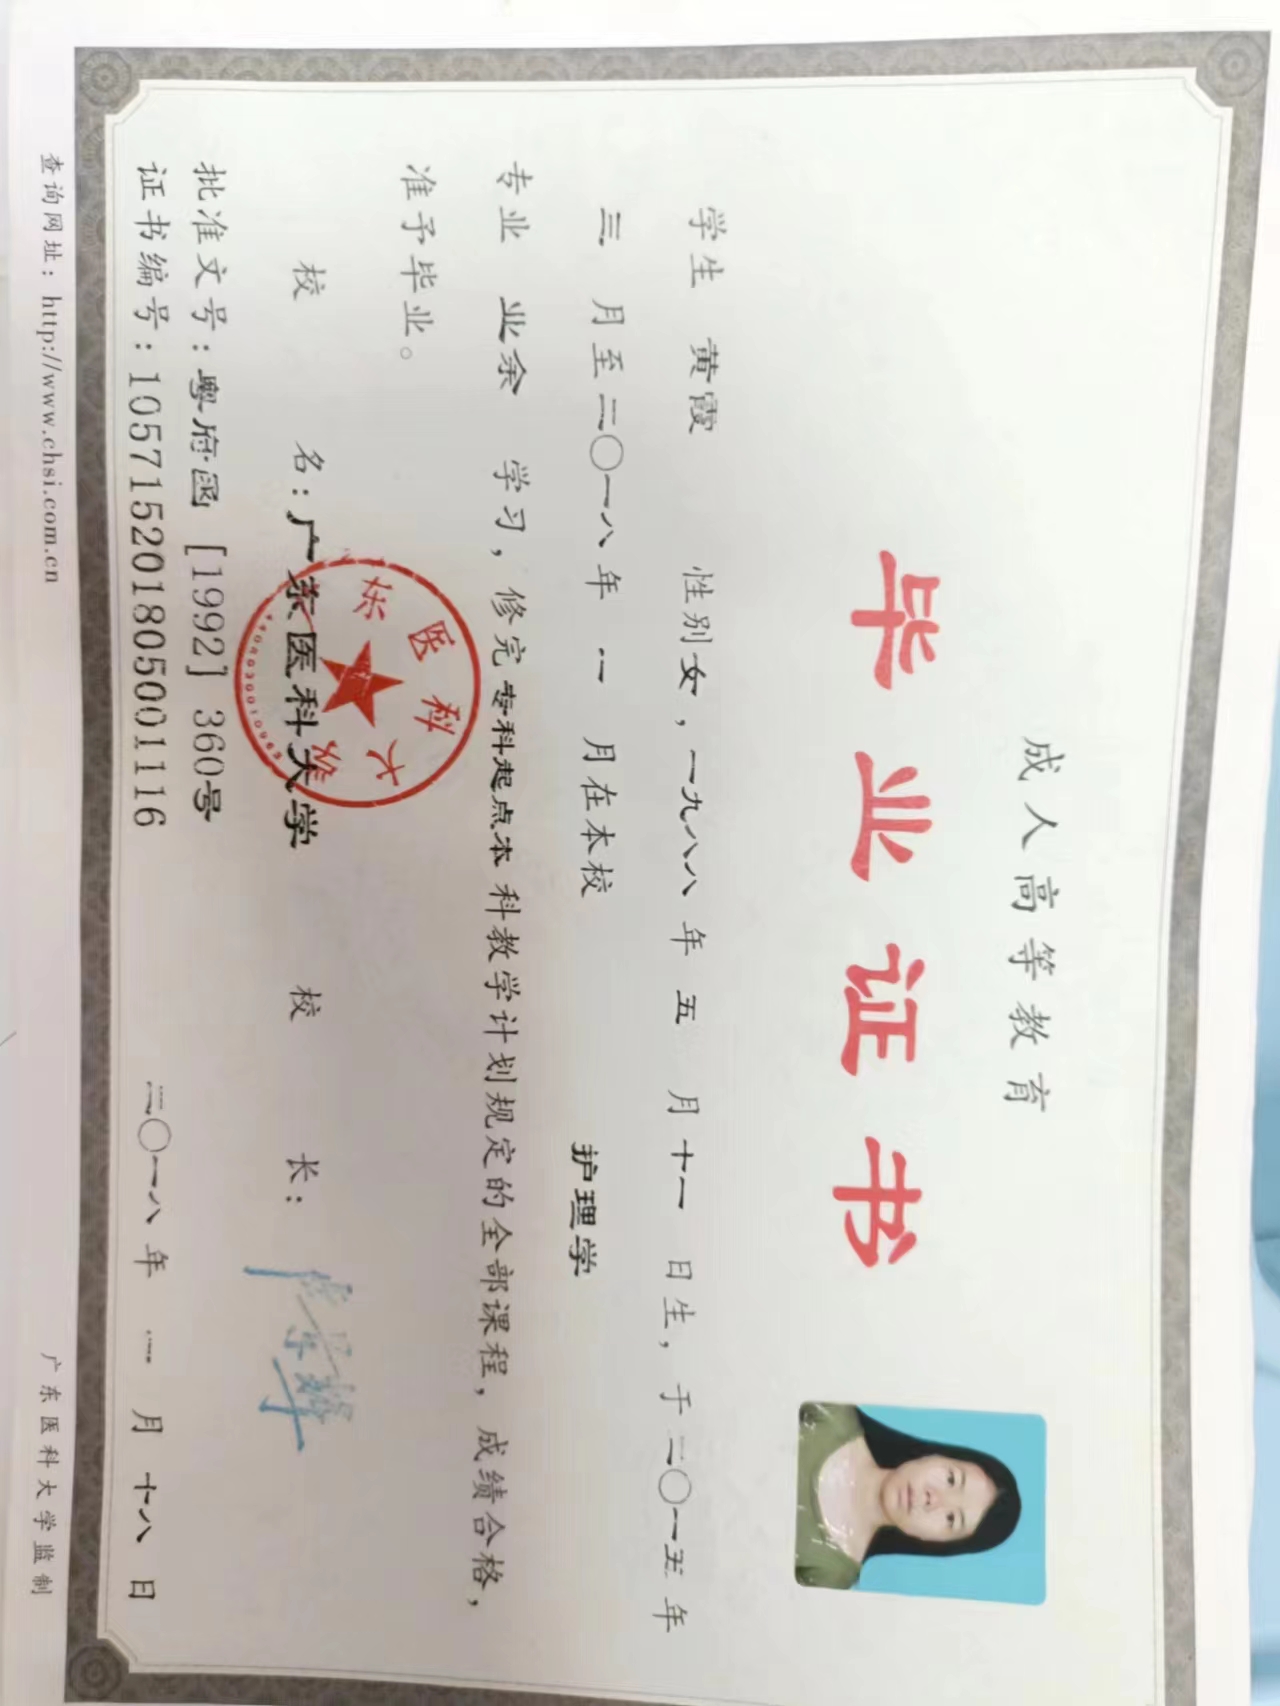 成人高等教育
毕业证书
学生 黄霞 性别女，一九八八年 五 月十一 日生，于二〇一五年
三 月至二〇一八年 一 月在本校 护理学
专业 业余 学习，修完专科起点本科教学计划规定的全部课程，成绩合格，
准予毕业。
校 名：广东医科大学 校 长：
东医科大学
批准文号：粤府函［1992］360号
证书编号：105715201805001116 二〇一八年 一 月 十八 日
查询网址：http://www.chsi.com.cn 广东医科大学监制